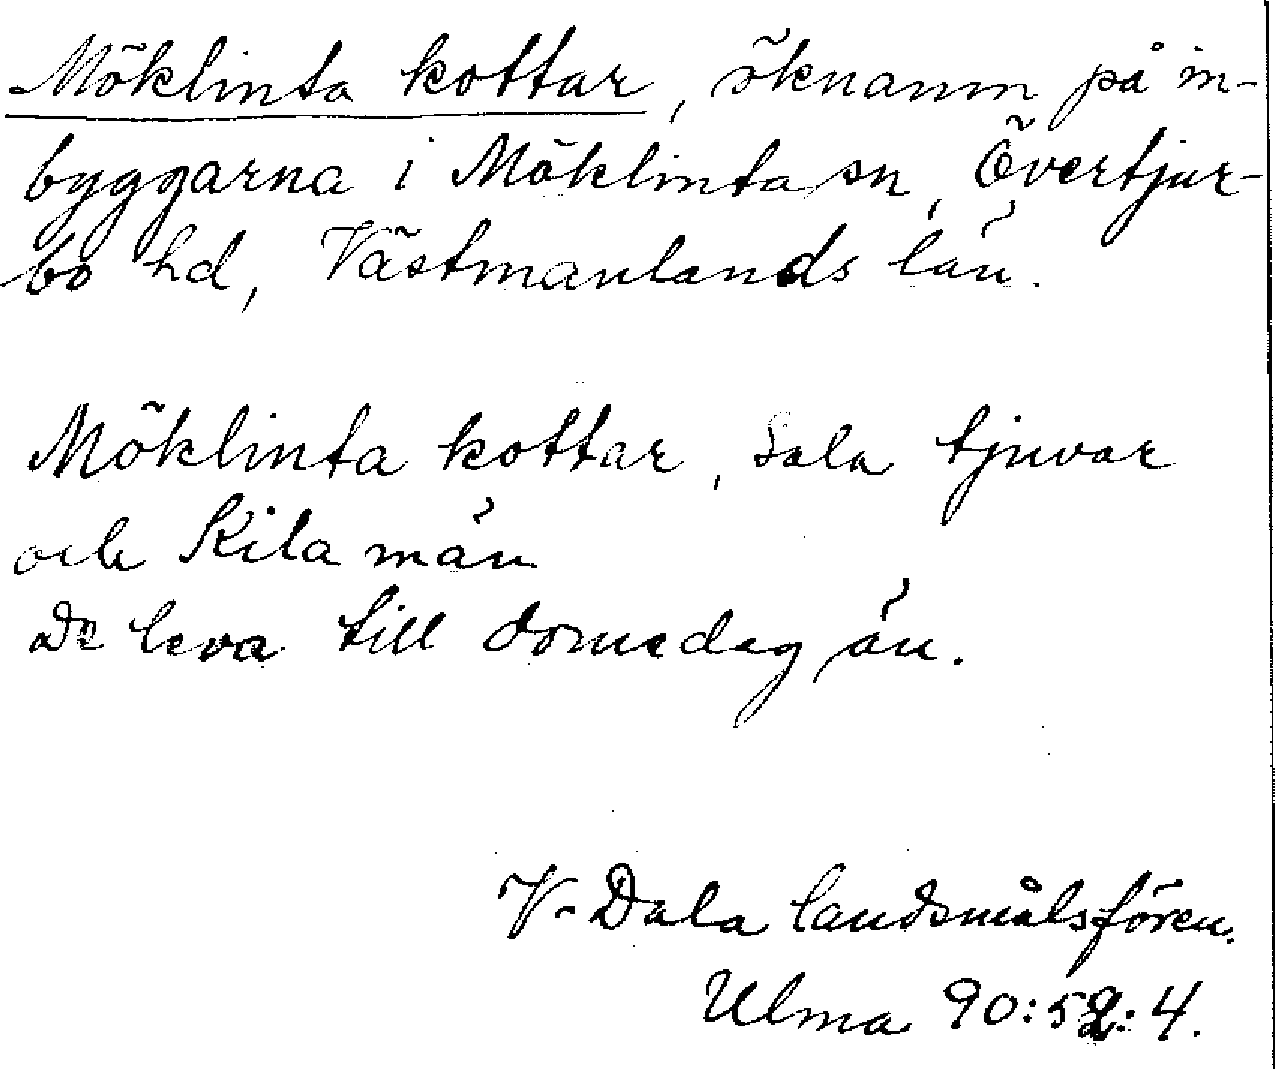 Möklinta kottar, öknamn på in-
byggarna i Möklinta sn, Övertjur-
bo hd, Västmanlands län.
Möklinta kottar, Sala tjuvar
och Kila män
De leva till domedag än.
V-Dala landsmålsfören.
Ulma 90:52:4.